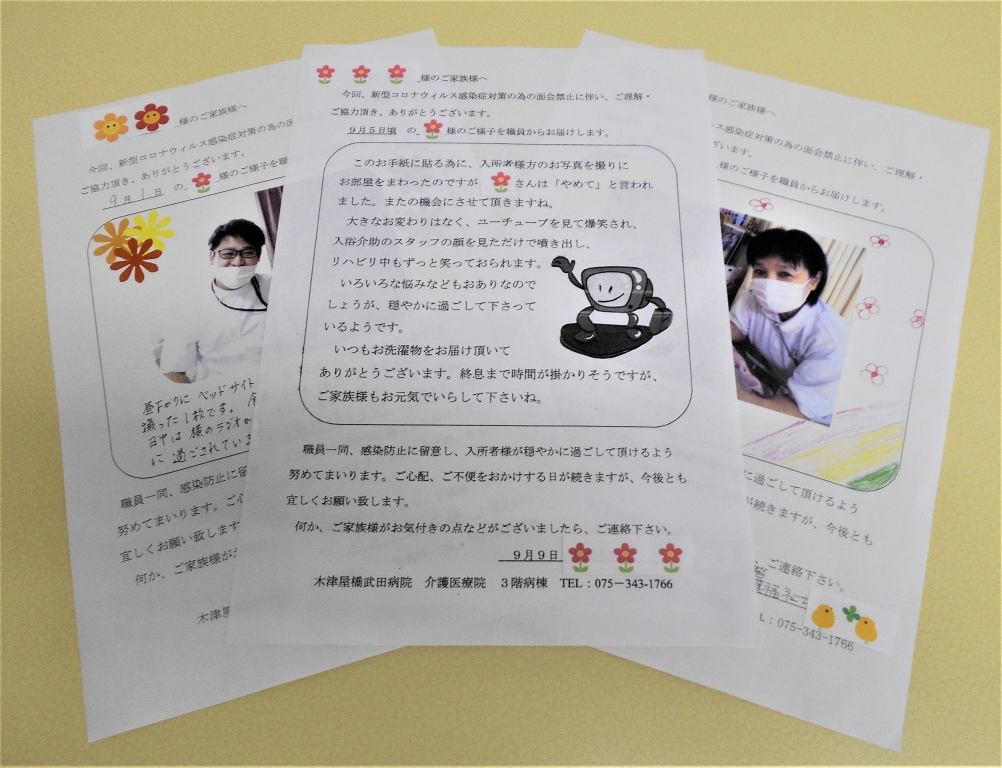 様のご家族様へ
今回、新型コロナウィルス感染症対策の為の
ご協力頂き、ありがとうございます。
9月1日 の、 様のご様子を職
昼下がりに ベッドサイト
撮った1枚です。
日中は 横のラジオか
に 過ごされていま
職員一同、感染防止に留
努めてまいります。ご心
宜しくお願い致します
何か、ご家族様が
木津屋
様のご家族様へ
今回、新型コロナウィルス感染症対策の為の面会禁止に伴い、ご理解・
ご協力頂き、ありがとうございます。
9月5日頃 の 様のご様子を職員からお届けします。
このお手紙に貼る為に、入所者様方のお写真を撮りに
お部屋をまわったのですが さんは「やめて」と言われ
ました。またの機会にさせて頂きますね。
大きなお変わりはなく、ユーチューブを見て爆笑され、
入浴介助のスタッフの顔を見ただけで噴き出し、
リハビリ中もずっと笑っておられます。
いろいろな悩みなどもおありなので
しょうが、穏やかに過ごして下さって
いるようです。
いつもお洗濯物をお届け頂いて
ありがとうございます。終息まで時間が掛かりそうですが、
ご家族様もお元気でいらして下さいね。
職員一同、感染防止に留意し、入所者様が穏やかに過ごして頂けるよう
努めてまいります。ご心配、ご不便をおかけする日が続きますが、今後とも
宜しくお願い致します。
何か、ご家族様がお気付きの点などがございましたら、ご連絡下さい。
9月9日
木津屋橋武田病院 介護医療院 3階病棟 TEL：075－343-1766
様のご家族様へ
ウィルス感染症対策の為の面会禁止に伴い、ご理解・
ざいます。
様のご様子を職員からお届けします。
に過ごして頂けるよう
が続きますが、今後とも
ご連絡下さい。
L：075-343-1766